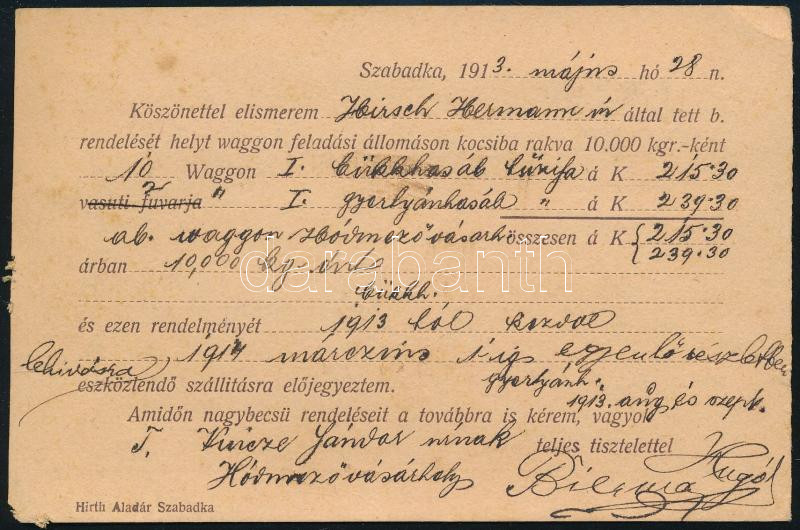 Szabadka, 1913. május hó 28 n.
Köszönettel elismerem Hirsch Hermann úr által tett b.
rendelését helyt waggon feladási állomáson kocsiba rakva 10.000 kgr.-ként
10 Waggon I. bükkhasáb tűzifa á K 215·30
vasuti fuvarja 2 " I. gyertyánhasáb " á K 239·30
ab. waggon Hódmezővásárh összesen á K 215·30
239·30
árban 10,000 kg. ért
bükkh.
és ezen rendelményét 1913 tól kezdve
lehivásra 1914 márczius 1 ig egyenlő részletben
eszközlendő szállitásra előjegyeztem. gyertyánh.
1913. aug és szept.
Amidőn nagybecsü rendeléseit a továbbra is kérem, vagyok
T. Kincze Sándor urnak teljes tisztelettel
Hódmezővásárhely Hugó
Hirth Aladár Szabadka
darabanth